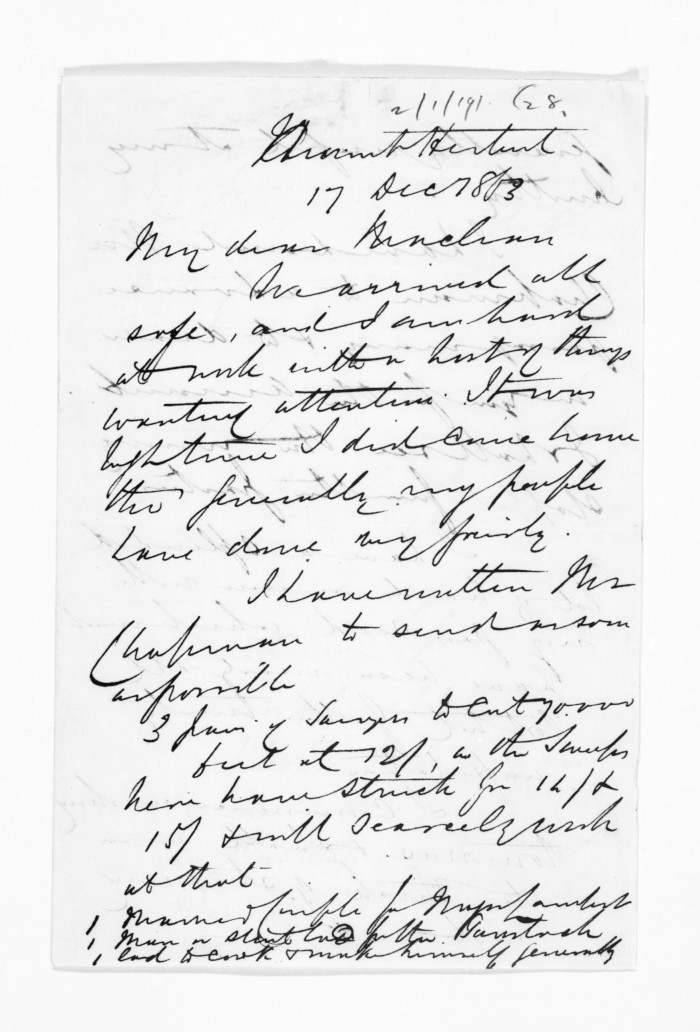 Mount Herbert
17 Dec 1863
My dear McLean
We arrived all
safe, and I am hard
at work with a host of things
wanting attention. It was
high time I did come home
tho' generally my people
have done very fairly.
I have written Mr
Chapman to send as soon
as possible
3 pair of Sawyers to cut 70.000
feet at 12/, as the Sawyers
here have struck for 14/ &
15/ & will scarcely work
at that
1, married Couple for
1, Man or stout lad
1, lad to cook & make himself generally